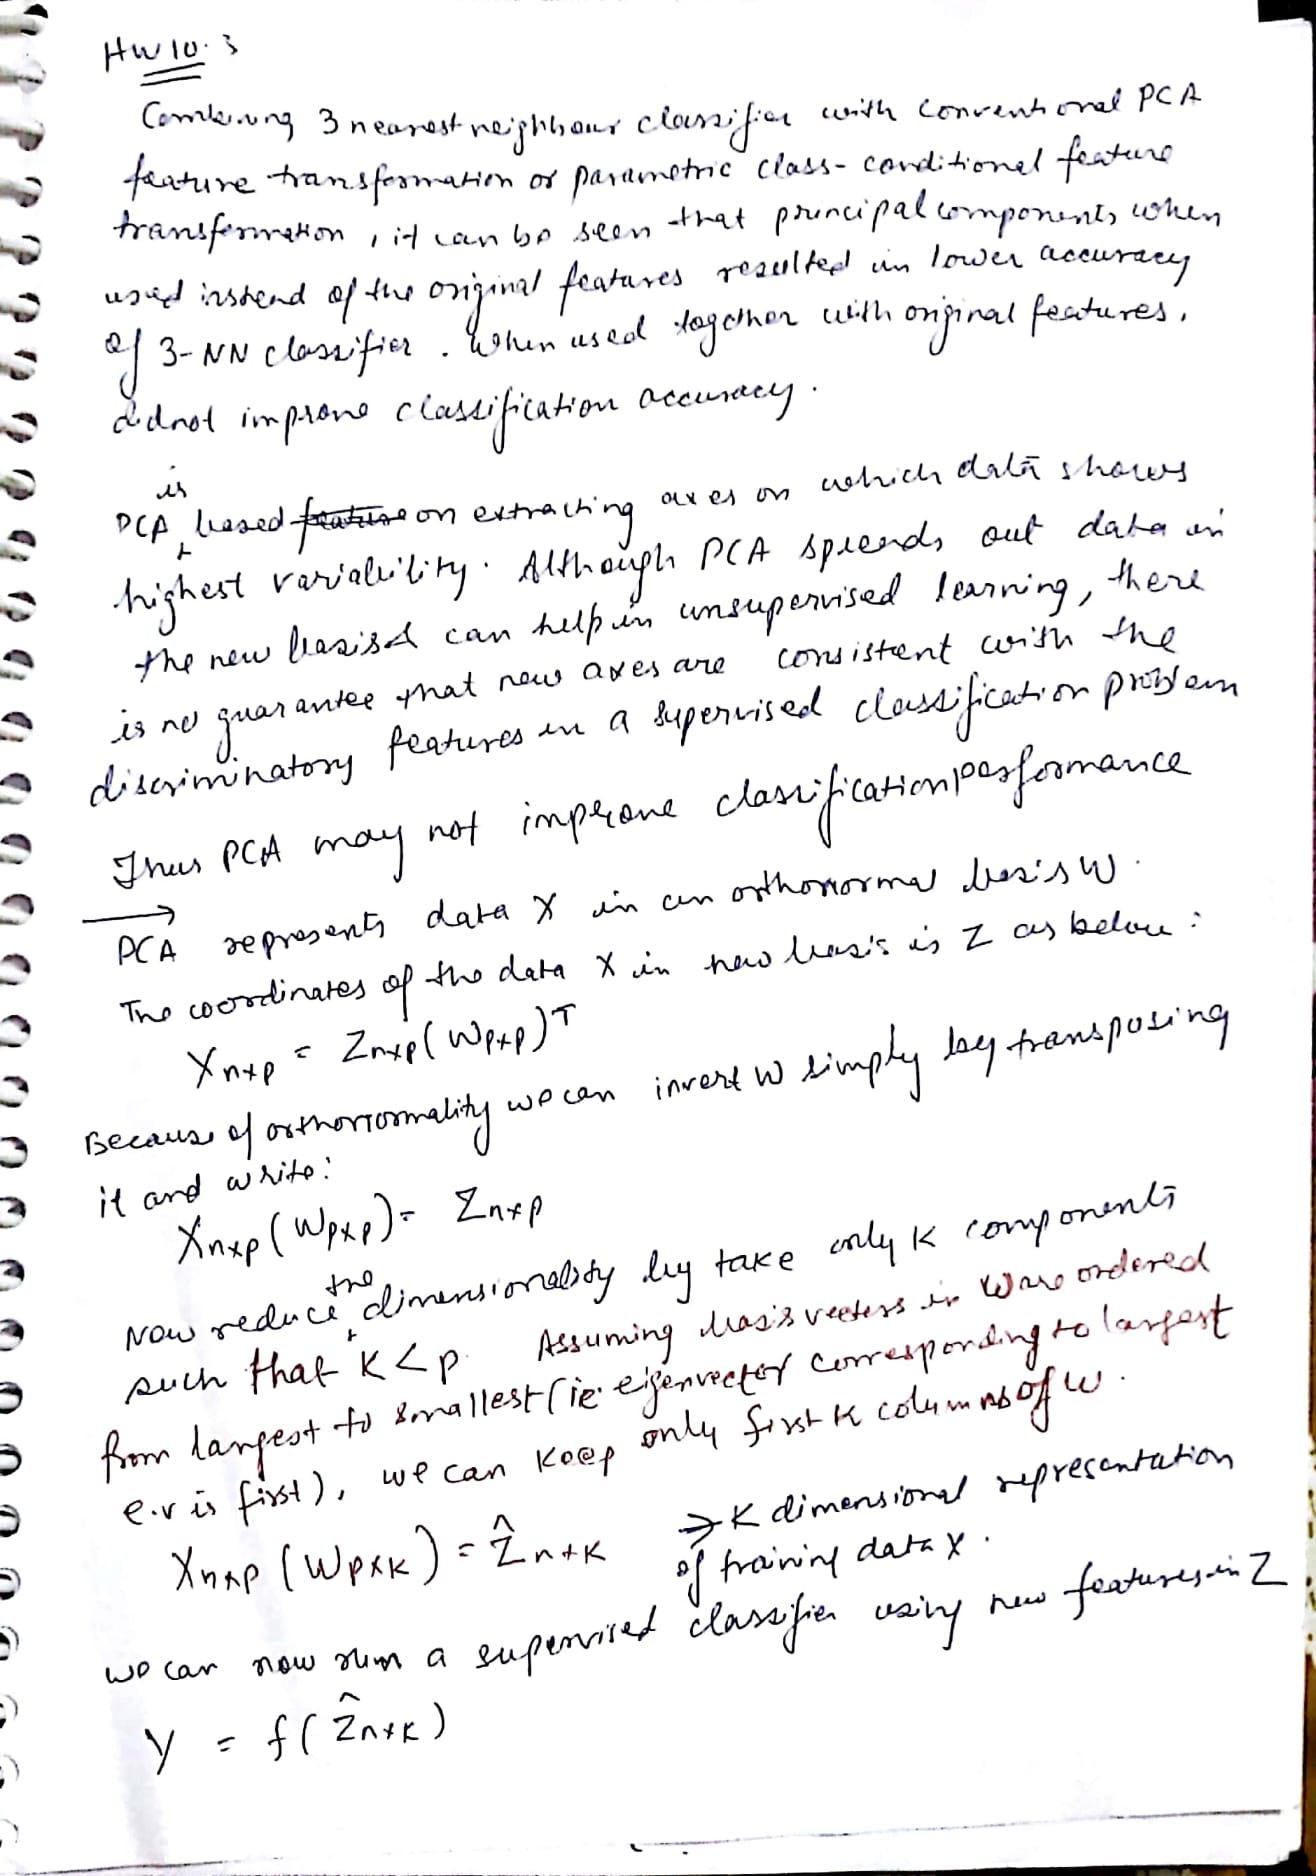 HW 10.3
Combining 3 nearest neighbour classifier with conventional PCA
feature transformation or parametric class-conditional feature
transformation, it can be seen that principal components, when
used instead of the original features resulted in lower accuracy
of 3-NN classifier. When used together with original features,
did not improve classification accuracy.
PCA is based feature on extracting axes on which data shows
highest variability. Although PCA spreads out data in
the new basis & can help in unsupervised learning, there
is no guarantee that new axes are consistent with the
discriminatory features in a supervised classification problem
Thus PCA may not improve classification performance
→
PCA represents data X in an orthonormal basis W.
The coordinates of the data X in new basis is Z as below:
Xn×p = Zn×p(Wp×p)ᵀ
Because of orthonormality we can invert W simply by transposing
it and write:
Xn×p(Wp×p) = Zn×p
Now reduce the dimensionality by take only K components
such that K<p. Assuming basis vectors in W are ordered
from largest to smallest (ie. eigenvector corresponding to largest
e.v is first), we can keep only first K columns of W.
Xn×p(Wp×K) = Ẑn×K → K dimensional representation
of training data X.
we can now run a supervised classifier using new features in Z
Y = f(Ẑn×K)